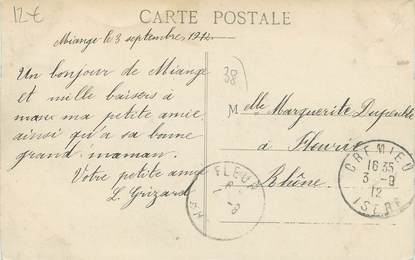 12€
CARTE POSTALE
Miange le 3 septembre 1912
38
Un bonjour de Miange
et mille baisers à
ma petite amie
ainsi qu'à sa bonne
grand'maman.
Votre petite amie
L. Grizard
Melle Marguerite
à Fleurie
Rhône.
CREMIEU
16 35
3 -9
12
ISERE
FLEU